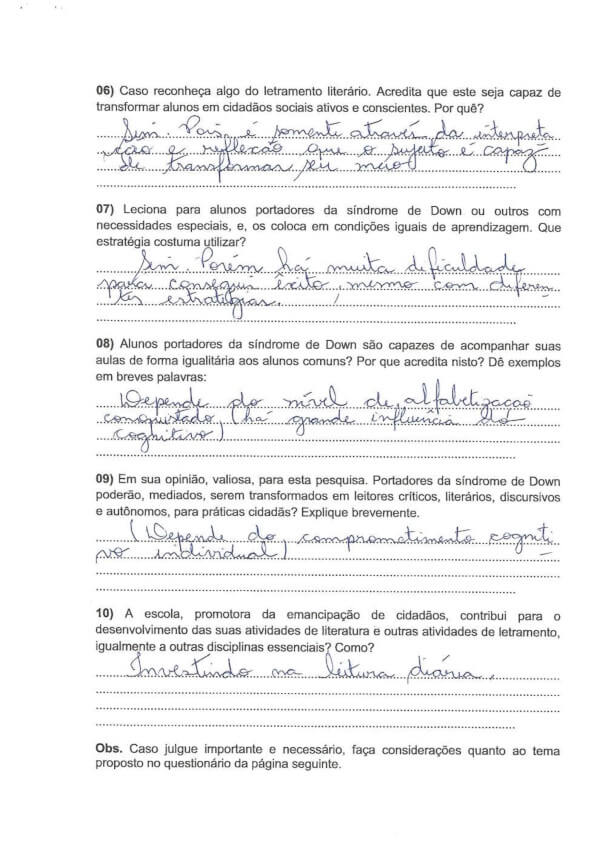 06) Caso reconheça algo do letramento literário. Acredita que este seja capaz de
transformar alunos em cidadãos sociais ativos e conscientes. Por quê?
Sim. Pois, é somente através da interpreta
ção e reflexão que o sujeito é capaz
de transformar seu meio.
07) Leciona para alunos portadores da síndrome de Down ou outros com
necessidades especiais, e, os coloca em condições iguais de aprendizagem. Que
estratégia costuma utilizar?
Sim. Porém há muita dificuldade
para conseguir êxito, mesmo com diferen
tes estratégias.
08) Alunos portadores da síndrome de Down são capazes de acompanhar suas
aulas de forma igualitária aos alunos comuns? Por que acredita nisto? Dê exemplos
em breves palavras:
Depende do nível de alfabetização
conquistado, (há grande influência do
cognitivo)
09) Em sua opinião, valiosa, para esta pesquisa. Portadores da síndrome de Down
poderão, mediados, serem transformados em leitores críticos, literários, discursivos
e autônomos, para práticas cidadãs? Explique brevemente.
(Depende do comprometimento cogniti
vo individual)
10) A escola, promotora da emancipação de cidadãos, contribui para o
desenvolvimento das suas atividades de literatura e outras atividades de letramento,
igualmente a outras disciplinas essenciais? Como?
Investindo na leitura diária.
Obs. Caso julgue importante e necessário, faça considerações quanto ao tema
proposto no questionário da página seguinte.